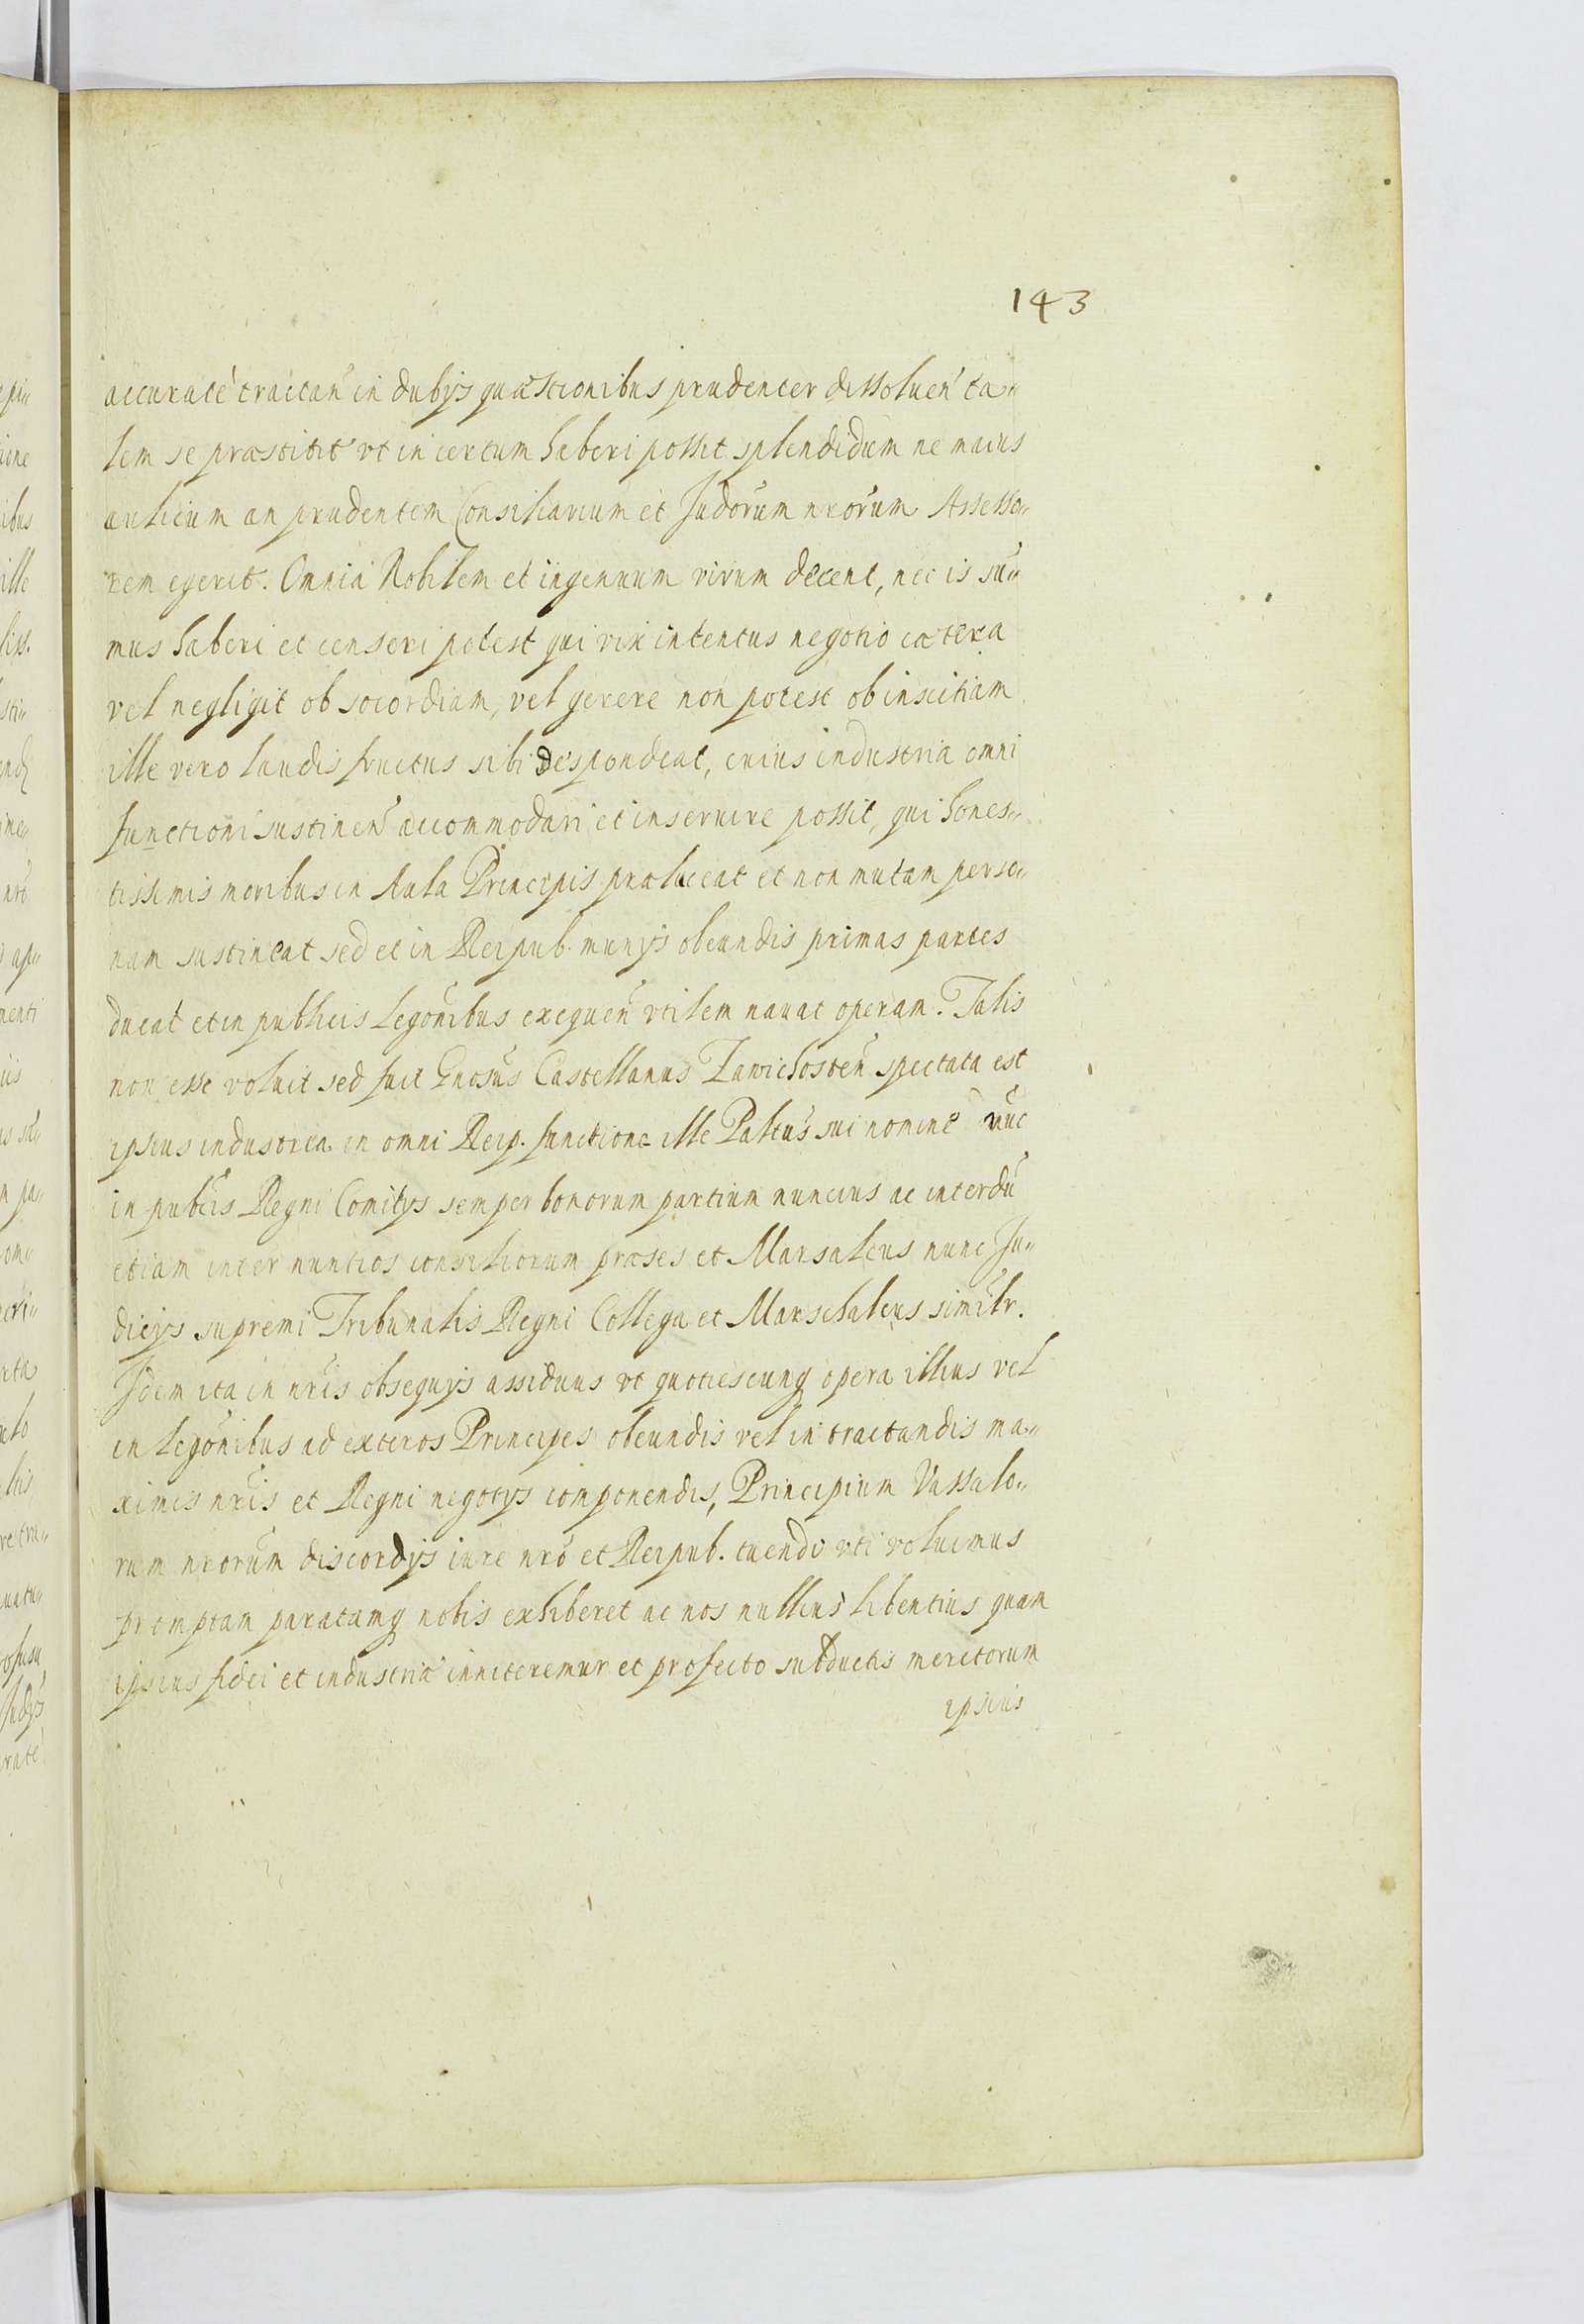 143
accurate tractan in dubys quæstionibus prudenter dissoluen ta„
lem se præstitit vt incertum haberi possit splendidum ne maius
aulicum an prudentem Consiliarium et Judorum nrorum Assesso„
rem egerit. Omnia Nobilem et ingenuum virum decent, nec is su„
mus haberi et censeri potest qui vix intentus negotio cætera
vel negligit ob socordiam, vel gerere non potest ob inscitiam
ille vero laudis fructus sibi despondeat, cuius industria omni
functioni sustinen accommodari et inseruire possit, qui hones„
tissimis moribus in Aula Principis præluceat et non mutam perso„
nam sustineat sed et in Reipub. munys obeundis primas partes
ducat et in publicis Legonibus exequen vtilem nauat operam. Talis
non esse voluit sed fuit Gnosus Castellanus Zawichosten spectata est
ipsius industria in omni Reip. functione ille Paltus sui nomine nuc
in publis Regni Comitys semper bonorum partium nuncius ac interdu
etiam inter nuntios consiliorum præses et Marsalcus nunc Ju„
dicys supremi Tribunalis Regni Collega et Marschalcus similr.
Idem ita in nris obsequys assiduus vt quotiescunq opera illius vel
in legonibus ad exteros Principes obeundis vel in tractandis ma„
ximis nris et Regni negotys componendis, Principium Vassalo„
rum nrorum discordys iure nro et Reipub. tuendo vti voluimus
promptam paratamq nobis exhiberet ac nos nullius libentius quam
ipsius fidei et industriæ inniteremur et profecto subductis meritorum
ipsius